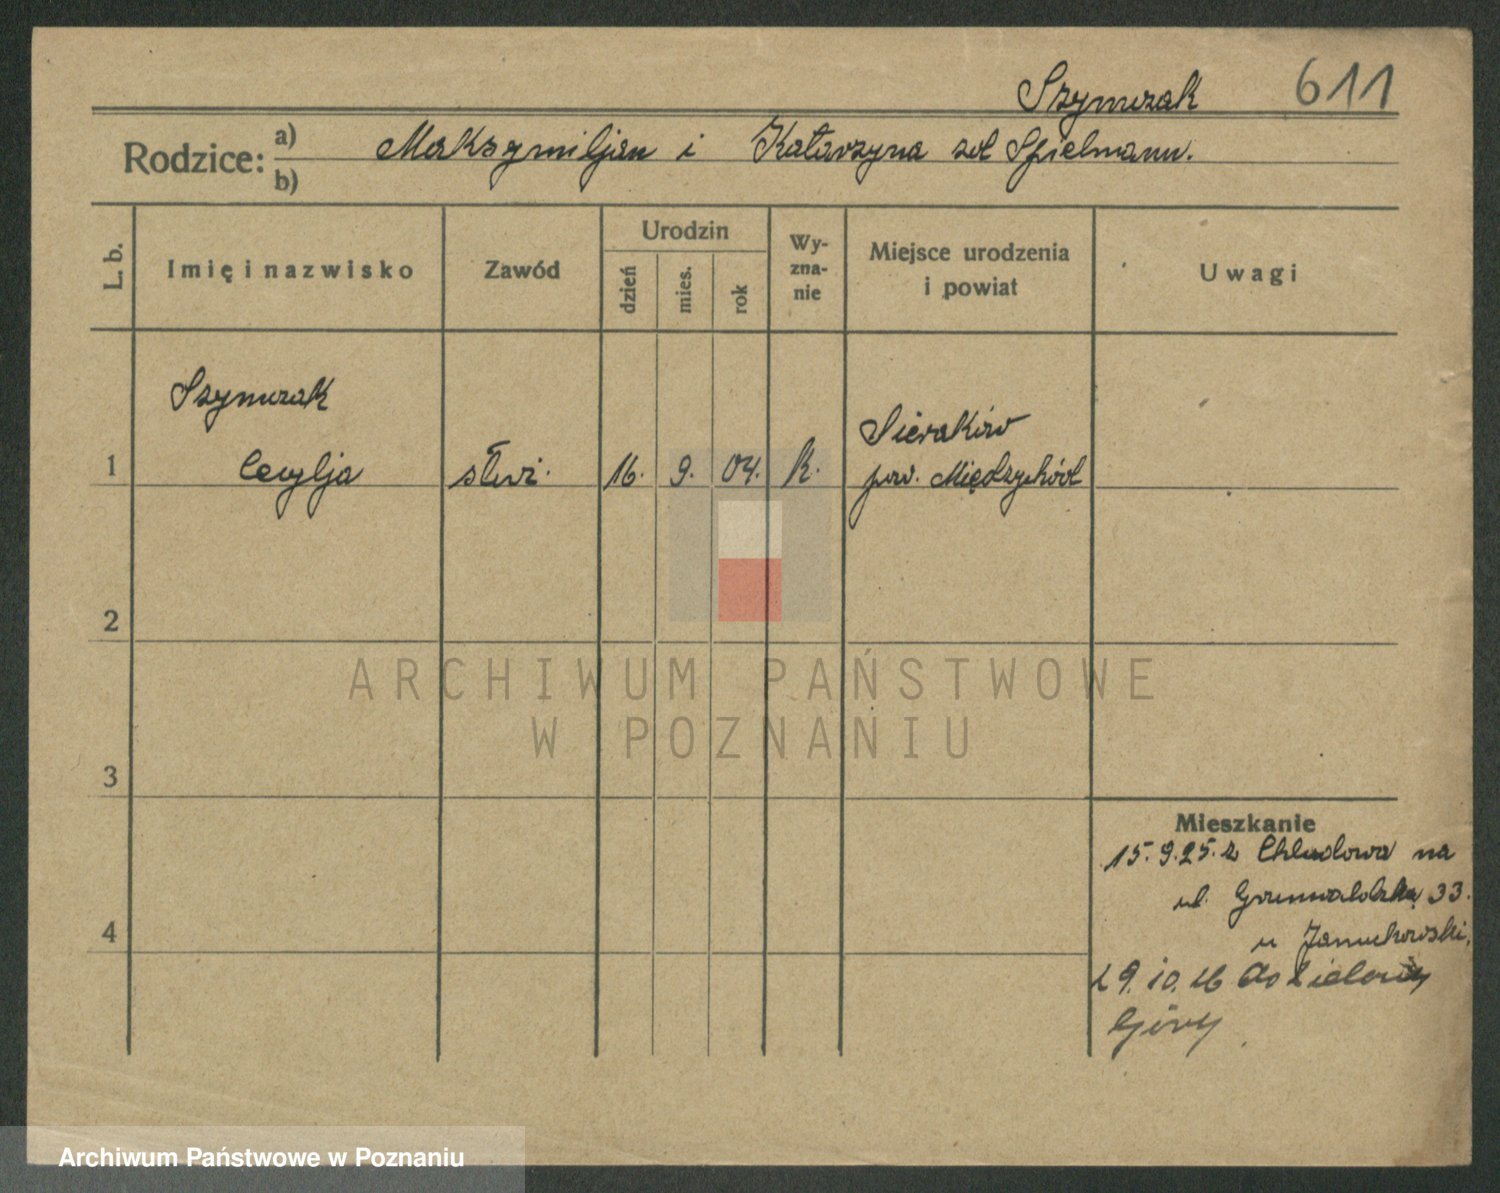 Szymczak 611
Rodzice: a) b) Maksymiljan i Katarzyna zd Spielmann.
L. b.
Imię i nazwisko
Zawód
Urodzin
dzień
mies.
rok
Wy-
zna-
nie
Miejsce urodzenia
i powiat
Uwagi
Szymczak
1 Cecylja służ. 16. 9. 04. k. Sieraków
pow. Międzychód
2
3
4
Mieszkanie
15.9.25. z Chludowa na
ul. Grunwaldzką 33.
u Janiukowski.
29.10.26 do Zielonej
Góry
ARCHIWUM PAŃSTWOWE
W POZNANIU
Archiwum Państwowe w Poznaniu